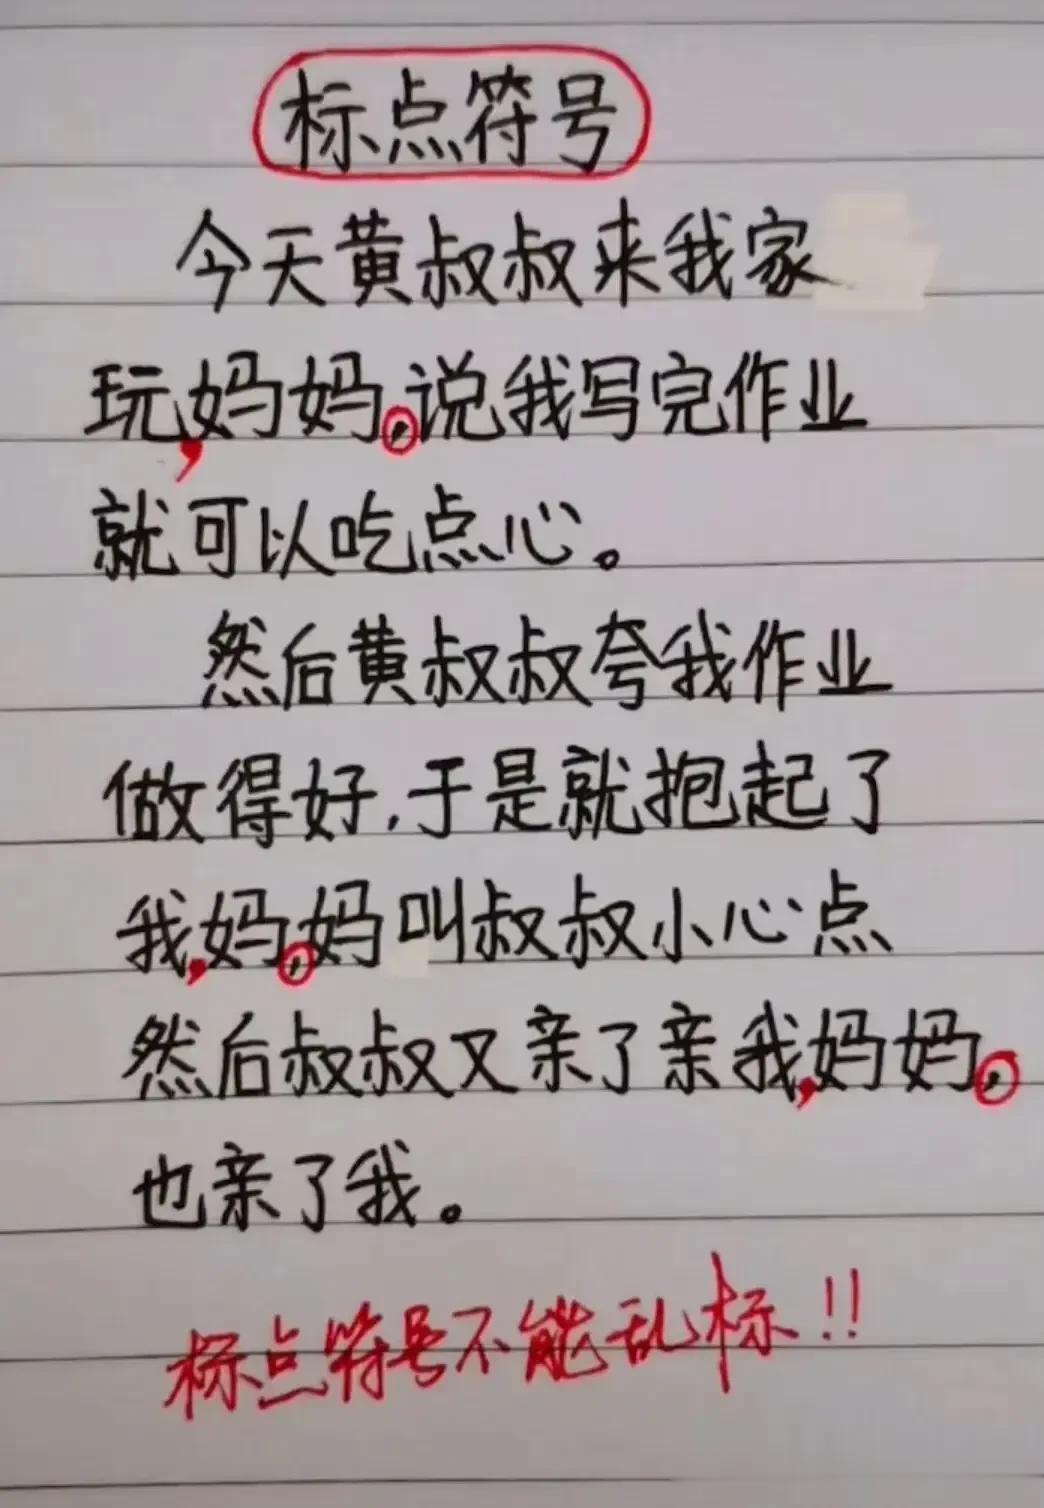 标点符号
今天黄叔叔来我家
玩,妈妈,说我写完作业
就可以吃点心。
然后黄叔叔夸我作业
做得好,于是就抱起了
我,妈,妈叫叔叔小心点
然后叔叔又亲了亲我,妈妈,
也亲了我。
标点符号不能乱标!!